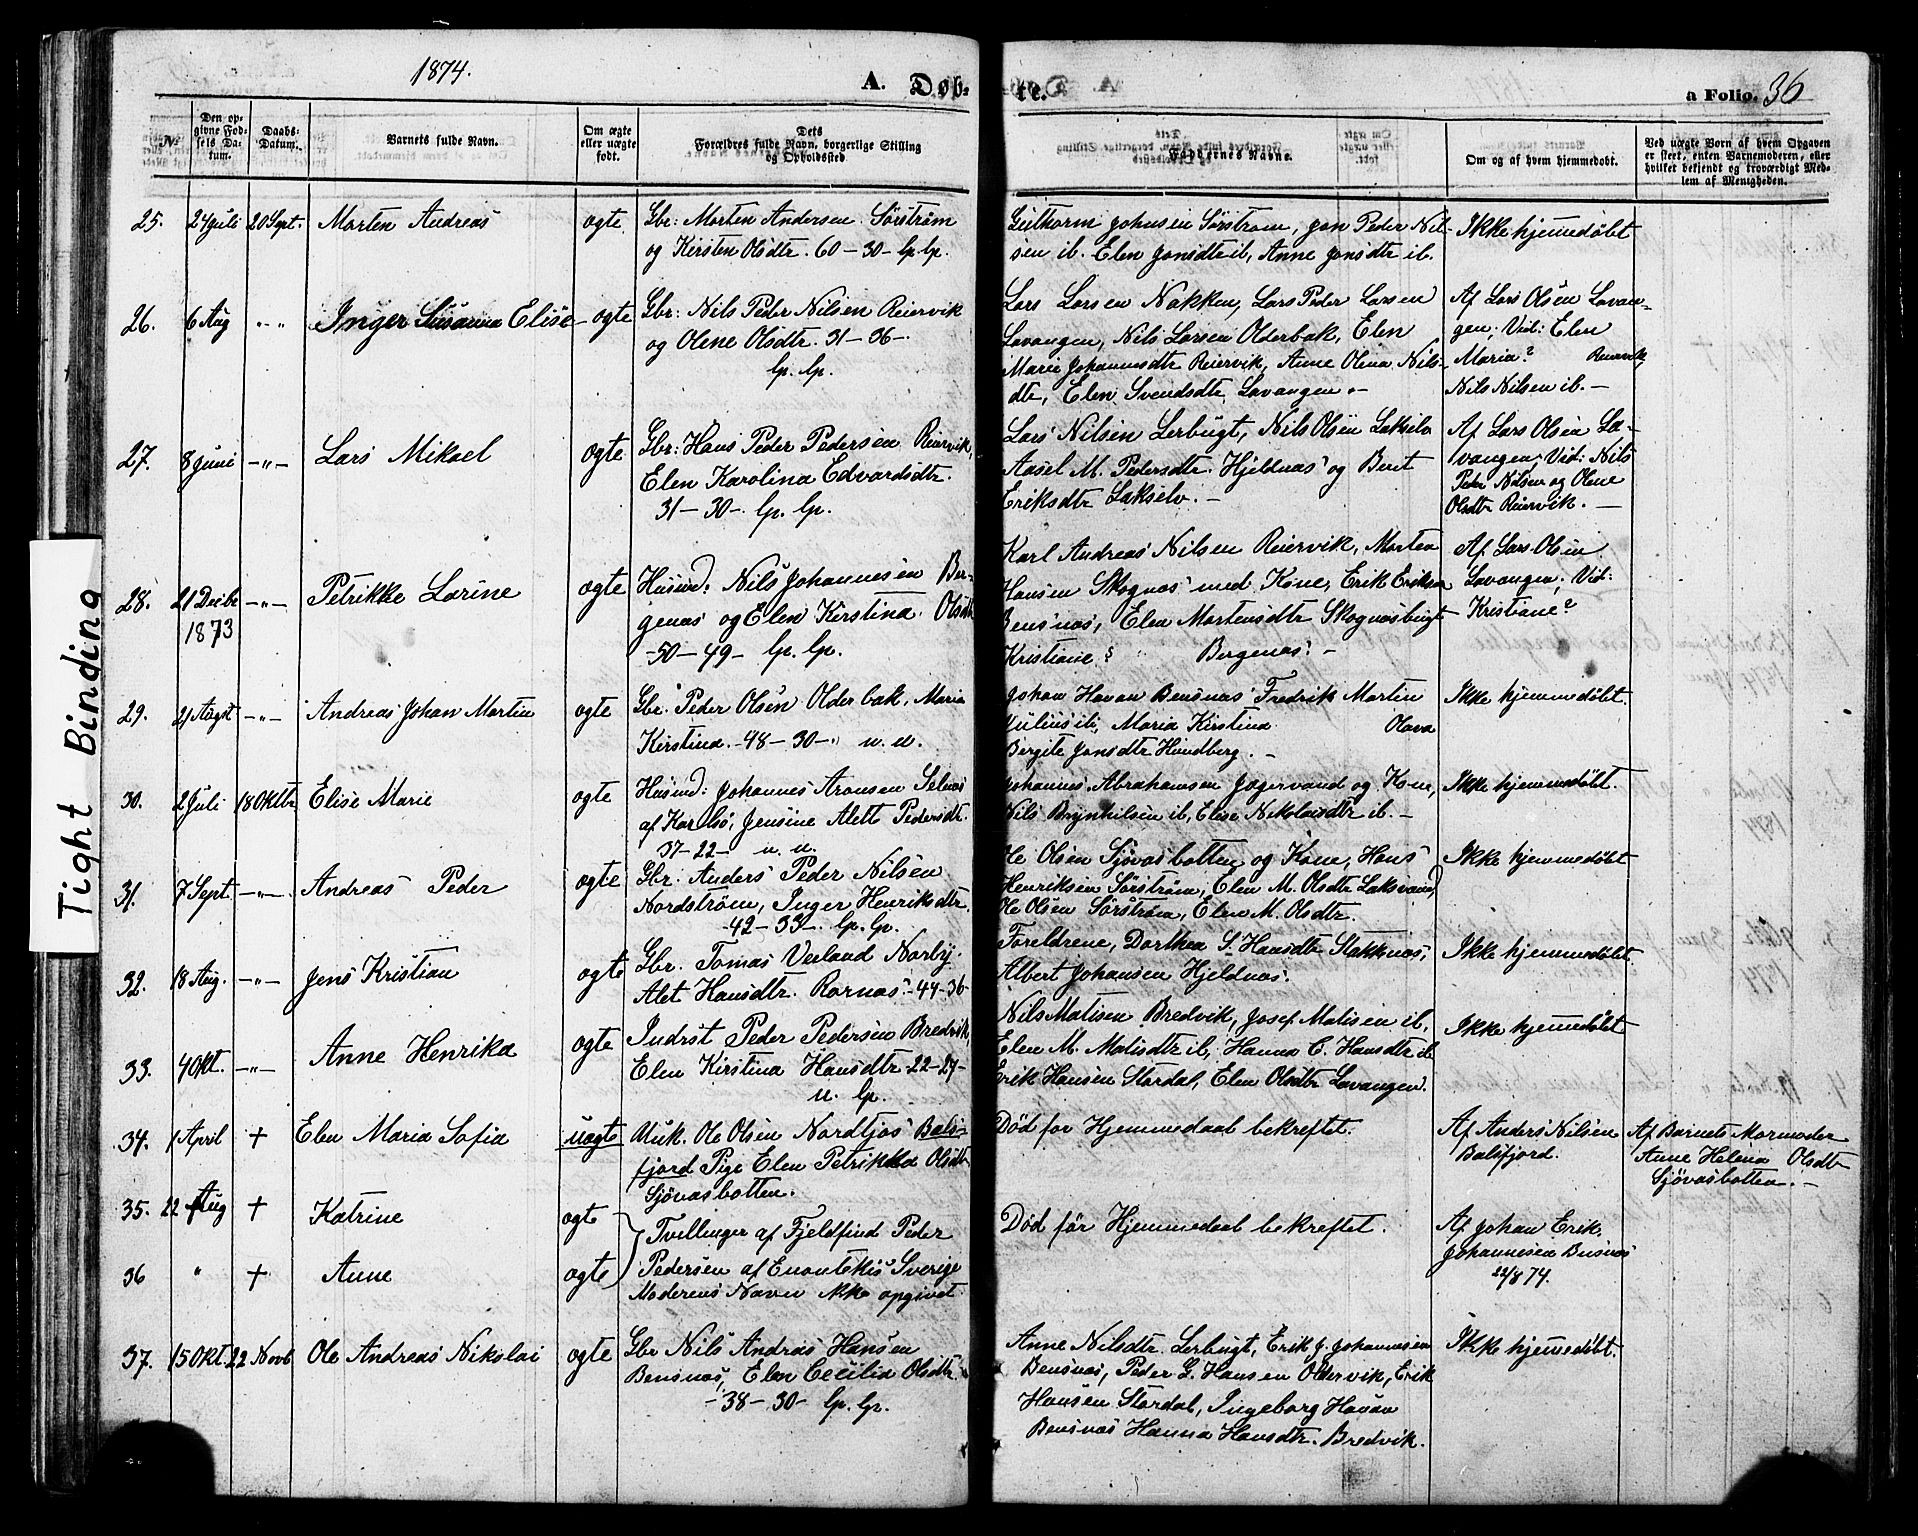 1874.
A. Døb-
te.
a Folio. 36
Tight Binding
No
Den op-
givne Fød-
sels Da-
tum.
Daabs-
Datum.
Barnets fulde Navn.
Om ægte
eller uægte
født.
Dets
Forældres fulde Navn, borgerlige Stilling
og Opholdssted.
Faddernes Navne.
Om og af hvem hjemmedøbt.
Ved uægte Børn af hvem Opgaven
er skeet, enten Barnemoderen, eller
hvilket bekjendt og troværdigt Med-
lem af Menigheden.
25. 24 Juli 20 Sept. Morten Andreas ogte
Gbr: Morten Andersen Sörström
og Kirsten Olsdtr. 60-30- lp. lp.
Guttorm Johnsen Sörström, Jon Peder Nil-
sen ib. Elen Jonsdtr ib, Anne Jonsdtr ib.
Ikke hjemmedöbt
26. 6 Aug -"- Inger Susanna Elise ogte
Gbr: Nils Peder Nilsen Reiervik
og Olene Olsdtr. 31-36-
lp. lp.
Lars Larsen Nakken, Lars Peder Larsen
Lavangen, Nils Larsen Olderbak, Elen
Marie Johannsdtr Reiervik, Anne Olina Nils-
dtr, Elen Svendsdtr Lavangen.-
Af Lars Olsen Lavan-
gen; Vid: Elen
Maria? Reiervik,
Nils Nilsen ib.-
27. 8 Juni -"- Lars Mikael ogte
Gbr: Hans Peder Pedersen Reiervik,
Elen Karolina Edvardsdtr.
31-30-. lp. lp.
Lars Nilsen Lerbugt, Nils Olsen Lakselv
Aasel M. Pedersdtr. Hjeldnas og Berit
Eriksdtr Lakselv. -
Af Lars Olsen La-
vangen; Vid: Nils
Peder Nilsen og Olene
Olsdtr Reiervik. -
28. 21 Decbr -"- Petrikke Larine ogte
1873
Husmd: Nils Johannesen Ber-
genas og Elen Kirstina Olsdtr
-50-49- lp. lp.
Karl Andreas Nilsen Reiervik, Morten
Hansen Skognas med Kone, Erik Eriksen
Bensnas, Elen Mortensdtr Skognasbugt
Kristiane ? Bergenas. -
Af Lars Olsen
Lavangen; Vid:
Kristiane?
29. 21 Augst -"- Andreas Johan Martin ogte
Gbr. Peder Olsen Olderbak, Maria
Kirstina. -48-30-" n. n.
Johan Havan Bensnas Fredrik Martin
Julius ib; Maria Kirstina Olava
Bergite Jonsdtr Hundberg. -
Ikke hjemmedöbt
30. 2 Juli 18 Oktbr Elise Marie ogte
Husmd: Johannes Aronsen Selnas
af Karlsö, Jensine Alette Pedersdtr.
37-22- n. n.
Johannes Abrahamsen Jagervand og Kone,
Nils Brynhilsen ib, Elise Nikolaisdtr ib. -
Ikke hjemmedöbt.
31. 7 Sept. -"- Andreas Peder ogte
Gbr. Anders Peder Nilsen
Nordström, Inger Henriksdtr.
-42-33-. lp. lp.
Ole Olsen Sjövasbotten og Kone, Hans
Henriksen Sörström, Elen M. Olsdtr Laksvand
Ole Olsen Sörström, Elen M. Olsdtr.
Ikke hjemmedöbt
32. 18 Aug. -"- Jens Kristian ogte
Gbr. Tomas Verland Norby.
Alet Hansdtr. Rornas. -44-36-
Foreldrene, Dorthea S. Hansdtr Stakknas,
Albert Johansen Hjeldnas.
Ikke hjemmedöbt.
33. 4 Okt. -"- Anne Henrika ogte
Indrst Peder Pedersen Bredvik,
Elen Kirstina Hansdtr-22-24-
n. lp.
Nils Matisen Bredvik, Josef Matisen ib,
Elen M. Matisdtr ib, Hanna C. Hansdtr ib
Erik Hansen Stordal, Elen Olsdtr Lavangen.
Ikke hjemmedöbt
34. 1 April + Elen Maria Sofia uogte
Unk. Ole Olsen Nordkjos Bals-
fjord Pige Elen Petrikka Olsdtr
Sjövasbotten.
Död for Hjemmedaab bekreftet.
Af Anders Nilsen
Balsfjord.
Af Barnets Mormoder
Anne Helena Olsdtr
Sjövasbotten. -
35. 22 Aug + Katrine ogte
36 " + Anne ogte
Tvillinger af Fjeldfind Peder
Pedersen af Enontekis Sverige
Moderens Navn ikke opgivet
Död for Hjemmedaab bekreftet.
Af Johan Erik
Johannesen Bensnas
22/8 74.
37. 15 Okt. 22 Novb Ole Andreas Nikolai ogte
Gbr Nils Andreas Hansen
Bensnas, Elen Cecilia Olsdtr.
-38-30- lp. lp.
Anne Nilsdtr. Lerbugt, Erik J. Johannesen
Bensnas, Peder G. Hansen Oldervik, Erik
Hansen Stordal, Ingeborg Havan
Bensnas Hanna Hansdtr. Bredvik.
Ikke hjemmedöbt.